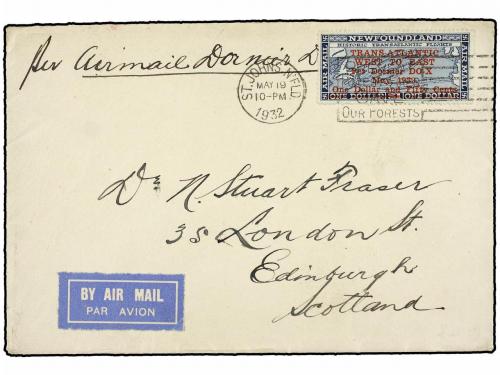 per Airmail Dornier D
NEWFOUNDLAND
HISTORIC TRANSATLANTIC FLIGHTS
AIR MAIL
AIR MAIL
TRANS-ATLANTIC
WEST TO EAST
Per Dornier DO-X
May, 1932.
One Dollar and Fifty Cents
ONE DOLLAR
ONE DOLLAR
ST. JOHN'S N'FLD.
MAY 19
10-PM
1932
OUR FORESTS
Dr N. Stuart Fraser
35 London St.
Edinburgh
Scotland
BY AIR MAIL
PAR AVION